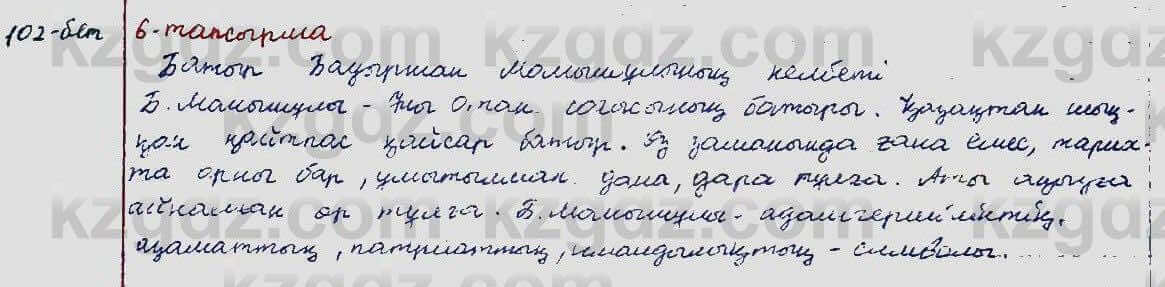 102-бет 6-тапсырма
Батыр Бауыржан Момышұлының келбеті
Б. Момышұлы - Ұлы Отан соғысының батыры. Қазақтан шық-
қан қайтпас қайсар батыр. Өз заманында ғана емес, тарих-
та орны бар, ұмытылмас дана, дара тұлға. Аты аңызға
айналған ер тұлға. Б. Момышұлы - адамгершіліктің,
азаматтың, патриоттың, имандылықтың - символы.